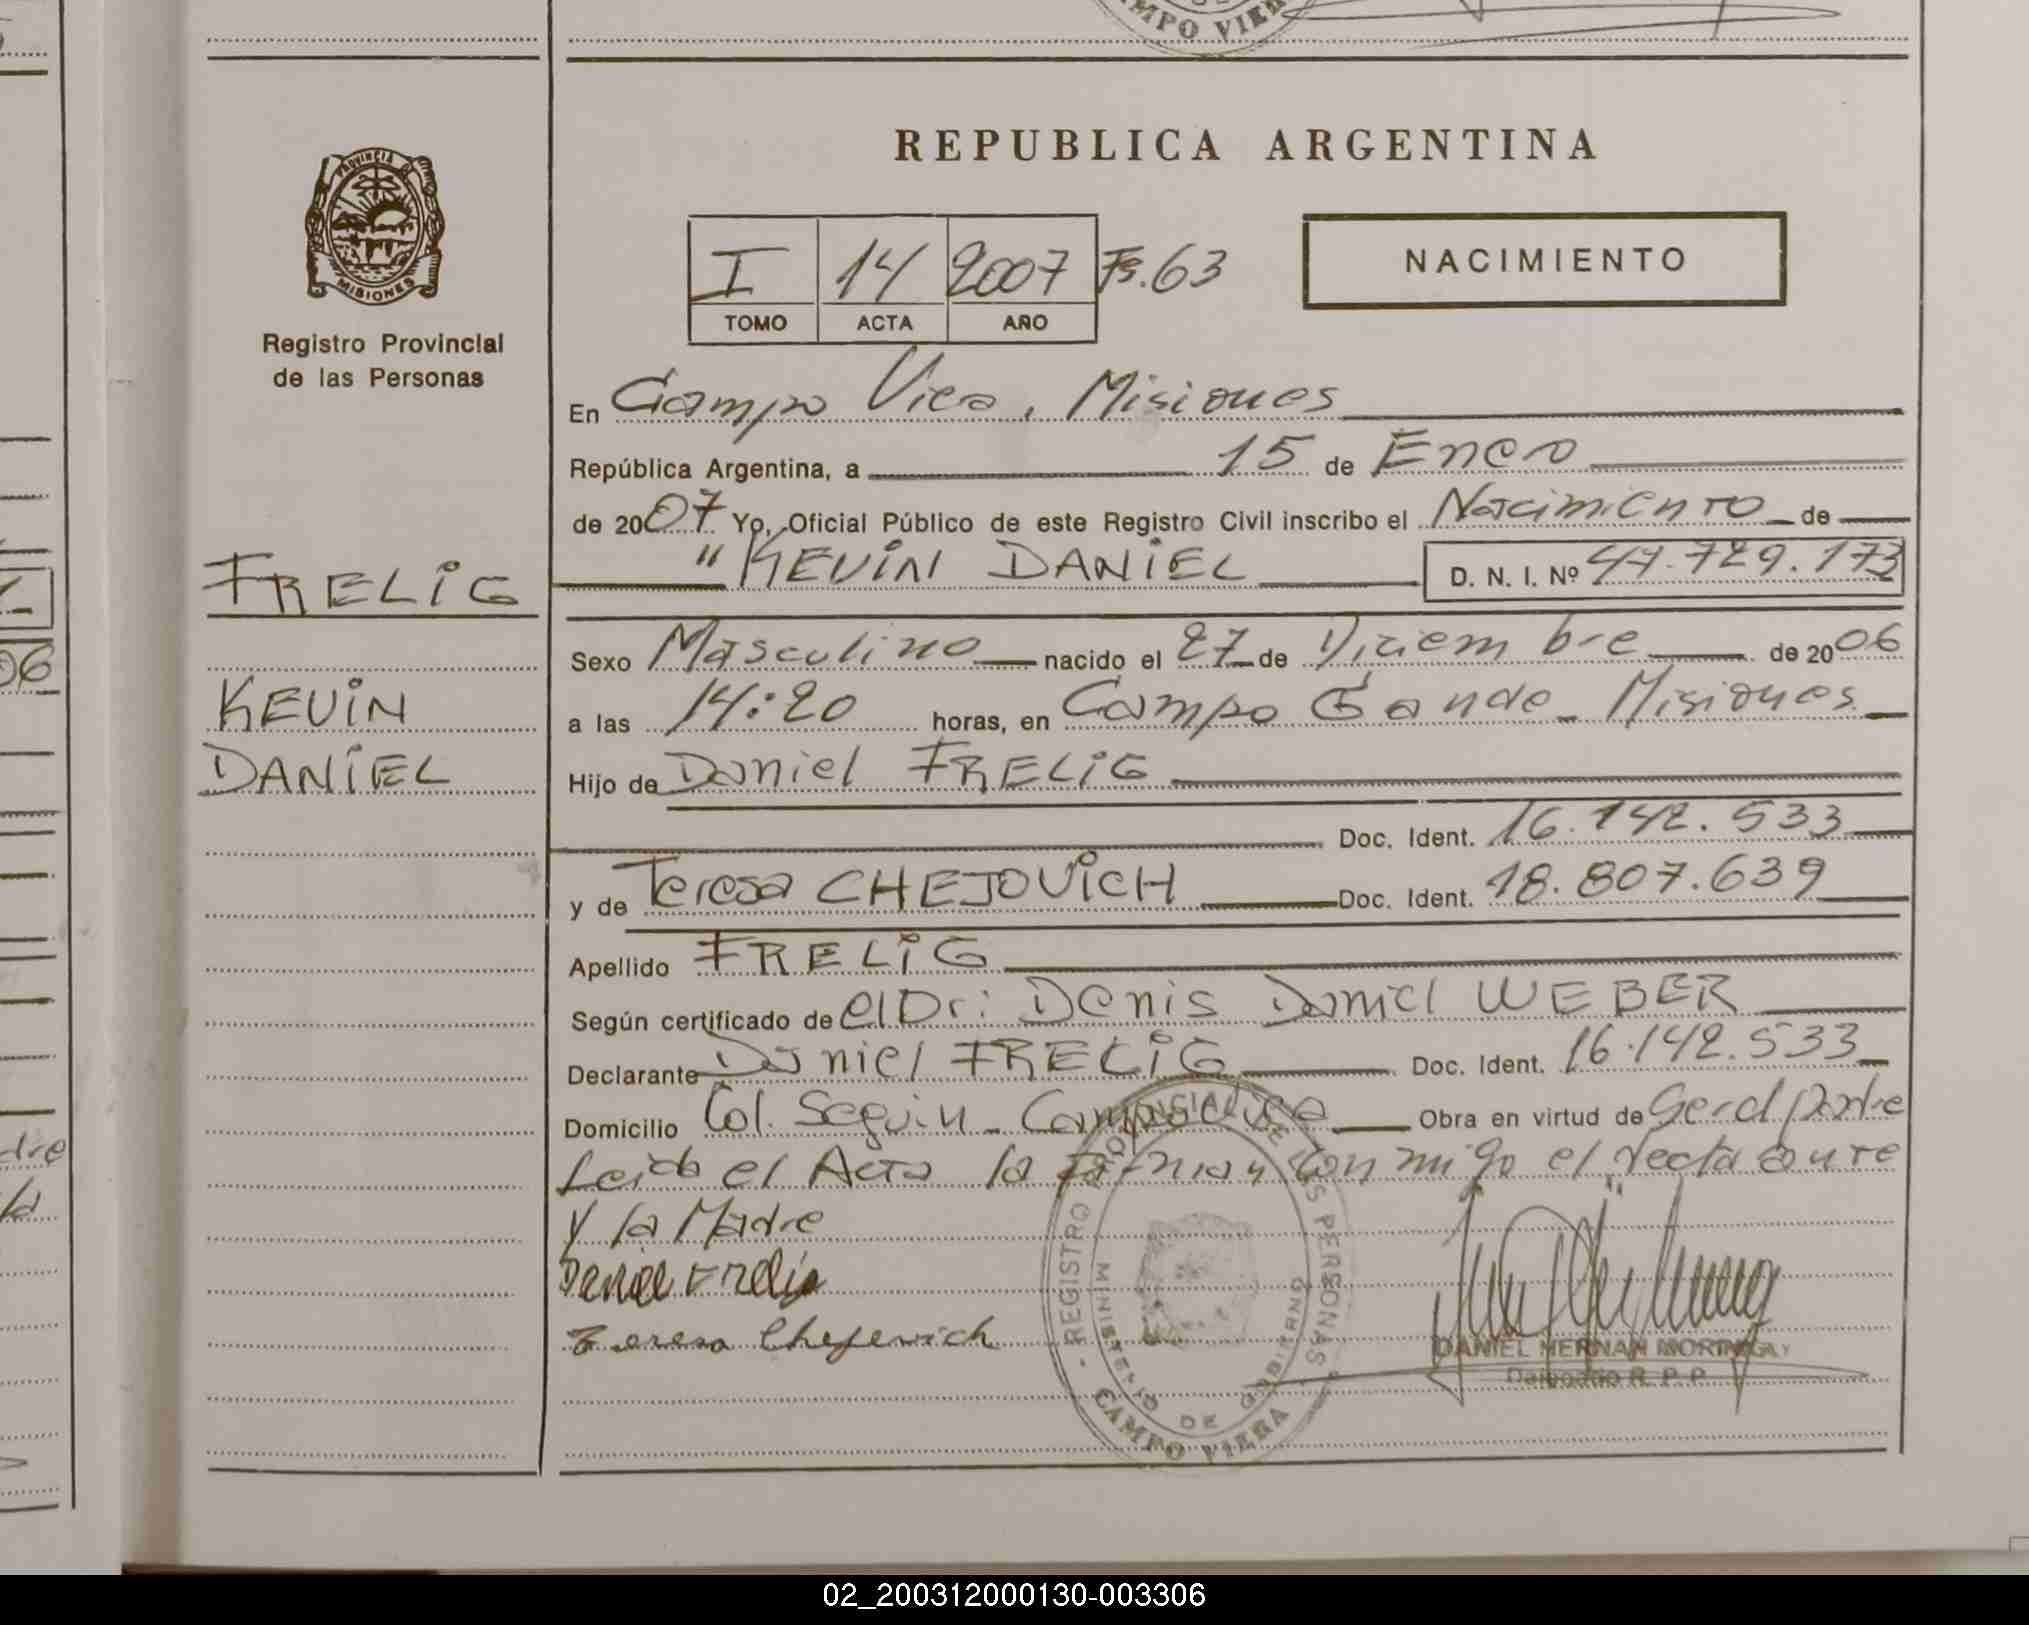 CAMPO VIERA
REPUBLICA ARGENTINA
PROVINCIA DE
MISIONES
Registro Provincial
de las Personas
I 14 2007 Fs. 63
TOMO ACTA AÑO
NACIMIENTO
En Campo Viera, Misiones
República Argentina, a 15 de Enero
de 2007 Yo, Oficial Público de este Registro Civil inscribo el Nacimiento de
"KEVIN DANIEL D. N. I. Nº 47.729.173
FRELIG
Sexo Masculino nacido el 27 de Diciembre de 2006
KEVIN
a las 14:20 horas, en Campo Gande - Misiones
DANIEL
Hijo de Daniel FRELIG
Doc. Ident. 16.142.533
y de Teresa CHEJOVICH Doc. Ident. 18.807.639
Apellido FRELIG
Según certificado de el Dr: Denis Daniel WEBER
Declarante Daniel FRELIG Doc. Ident. 16.142.533
Domicilio Col. Seguin - Campo Viera Obra en virtud de Ser el padre
Leida el Acta la Firman conmigo el
y la Madre
Daniel Frelig
Teresa Chejovich
REGISTRO PROVINCIAL DE LAS PERSONAS
MINISTERIO DE GOBIERNO
CAMPO VIERA
DANIEL HERNAN
Delegado R. P. P.
06
02_200312000130-003306